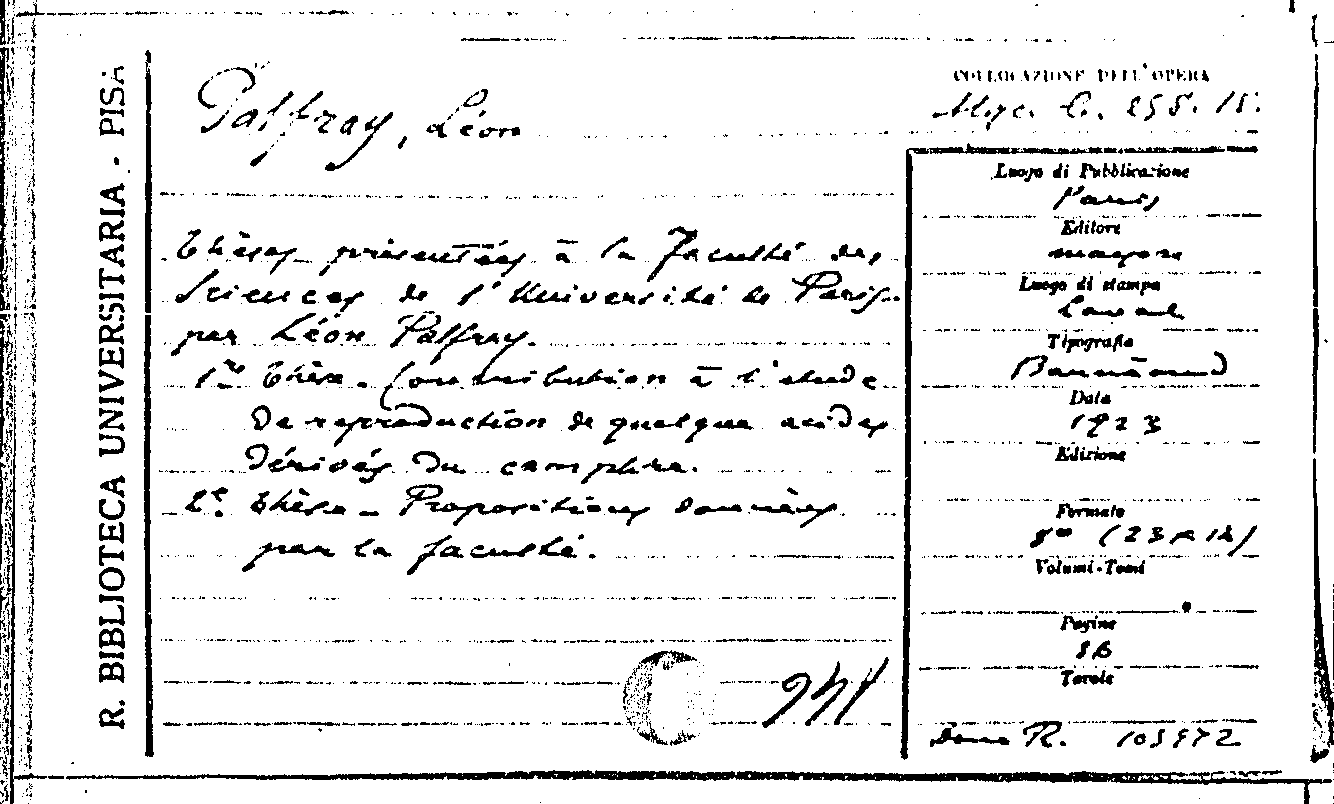 R. BIBLIOTECA UNIVERSITARIA - PISA
Palfray, Léon
Thèses présentées à la Faculté des
Sciences de l'Université de Paris
par Léon Palfray.
1re thèse. Contribution à l'étude
de reproduction de quelque acides
dérivés du camphre.
2e thèse - Propositions données
par la faculté.
COLLOCAZIONE DELL'OPERA
Misc. C. 255. 15.
Luogo di Pubblicazione
Paris
Editore
Luogo di stampa
Laval
Tipografia
Barnéoud
Data
1923
Edizione
Formato
8° (23 x 14)
Volumi-Tomi
Pagine
Tavole
Dono R. 103972